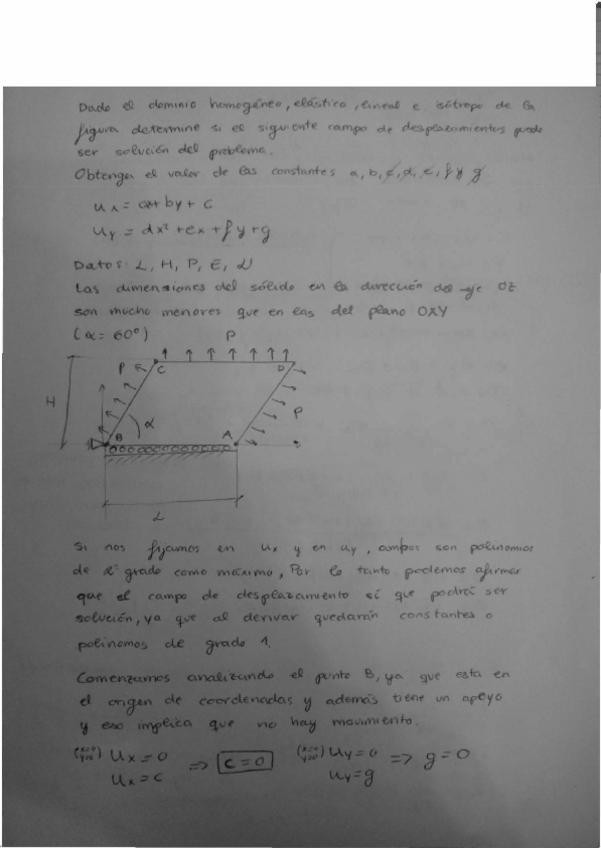 Dado el dominio homogéneo, elástico, lineal e isótropo de la
figura determine si el siguiente campo de desplazamientos puede
ser solución del problema.
Obtenga el valor de las constantes a, b, c, d, e, f y g
ux = ax + by + c
uy = dx² + ex + fy + g
Datos: L, H, P, E, ν
Las dimensiones del sólido en la dirección del eje OZ
son mucho menores que en las del plano OXY
(α = 60°)
P
P
C
D
H
P
α
B
A
L
Si nos fijamos en ux y en uy, ambos son polinomios
de 2º grado como máximo, Por lo tanto podemos afirmar
que el campo de desplazamiento sí que podrá ser
solución, ya que al derivar quedarán constantes o
polinomos de grado 1.
Comenzamos analizando el punto B, ya que esta en
el origen de coordenadas y además tiene un apoyo
y eso implica que no hay movimiento.
(x=0 y=0) ux = 0 => c = 0 (x=0 y=0) uy = 0 => g = 0
ux = c uy = g